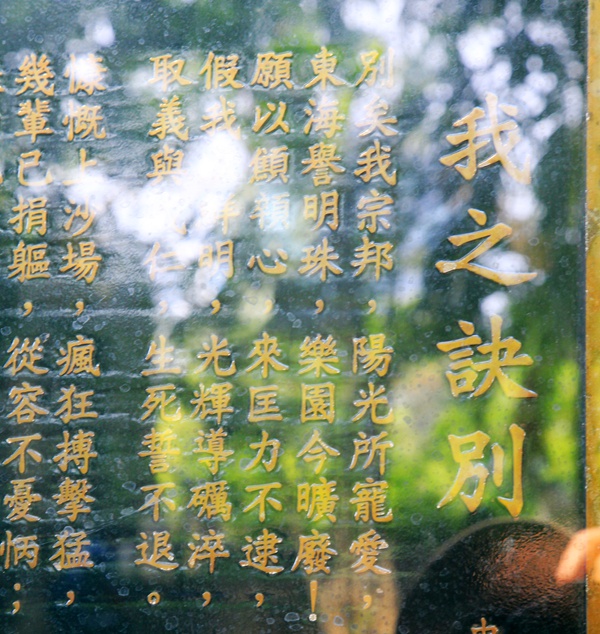 我之訣別
別矣我宗邦,陽光所寵愛,
東海譽明珠,樂園今曠廢!
願以心,來匡力不逮,
假我明,光輝導礪淬,
取義與仁,生死誓不退。
慷慨上沙場,瘋狂搏擊猛,
幾輩已捐軀,從容不憂怲;